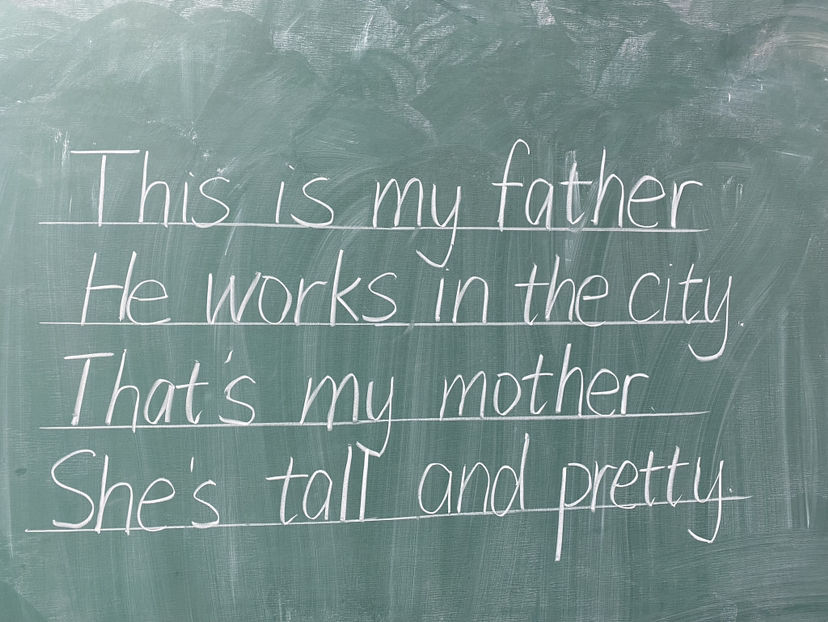 This is my father
He works in the city.
That's my mother.
She's tall and pretty.